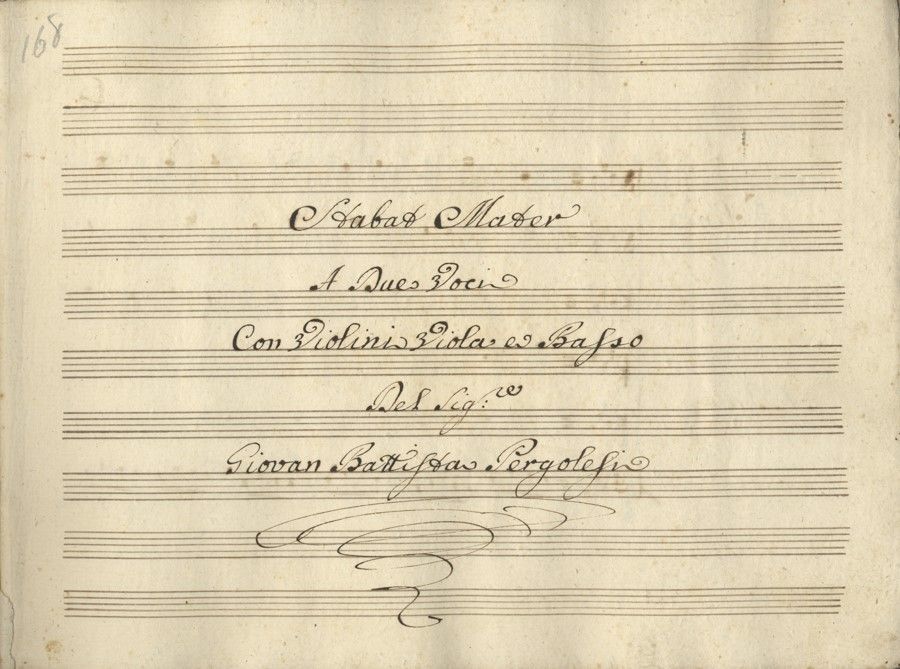 168
Stabat Mater
A Due Voci
Con Violini Viola e Basso
Del Sig:re
Giovan Battista Pergolesi